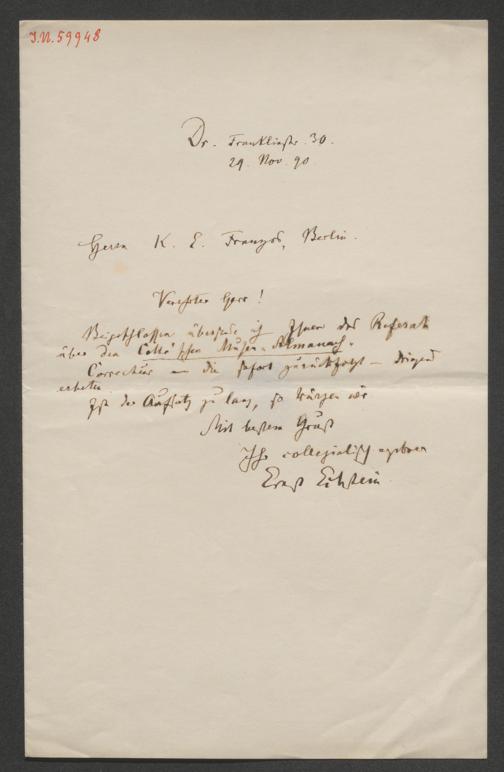 I.N. 59948
Dr. Franklinstr. 30.
29. Nov. 90.
Herrn K. E. Franzos, Berlin.
Verehrter Herr!
Beigeschlossen übersende ich Ihnen das Referat
über den Cotta'schen Musen-Almanach.
Correctur – die sofort zurückfolgt – dringend
erbeten
Ist der Aufsatz zu lang, so kürzen wir
Mit bestem Gruß
Ihr collegialisch ergebener
Ernst Eckstein.